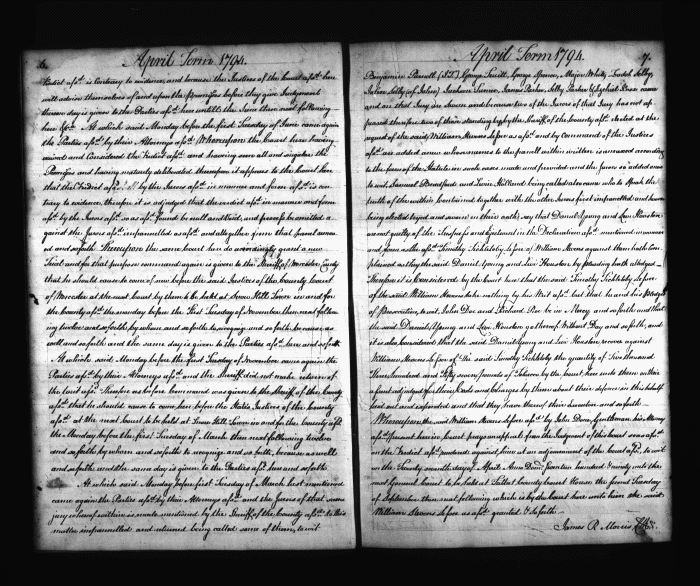 6.
April Term 1794.
Verdict afsd. is contrary to evidence, and because the Justices of the Court afsd. here
will advise themselves of and upon the Premises before they give Judgment
thereon day is given to the Parties afsd. here untill the June then next following
here &c. At which said Monday before the first Tuesday of June came again
the Parties afsd. by their Attorneys afsd. Whereupon the Court here having
viewed and Considered the Verdict afsd. and having seen all and singular the
Premises and having maturely deliberated thereupon it appears to the Court here
that the Verdict afsd. by the Jurors afsd. in manner and form afsd. is con
trary to evidence, therefore it is adjudged that the verdict afsd. in manner and form
afsd. by the Jurors afsd. so as afsd. found be null and void, and process be awarded a
gainst the Jurors afsd. impannelled as afsd. and altogether given that panel annul
ed and so forth Whereupon the same Court here do accordingly grant a new
Trial and for that purpose command again is given to the Sheriff of Worcester County
that he should cause to come now before the said Justices of the County Court
of Worcester at the next Court by them to be held at Snow Hill Town in and for
the County afsd. the monday before the First Tuesday of November then next follow
ing twelve and so forth by whom and so forth to recognize and so forth because as
well and so forth and the same day is given to the Parties afsd. here and so forth
At which said Monday before the first Tuesday of November came again the
Parties afsd. by their Attorneys afsd. and the Sheriff did not make return of
the writ afsd. Therefore as before Command was given to the Sheriff of the County
afsd. that he should cause to come here before the Justices of the County
afsd. at the next Court to be held at Snow Hill Town in and for the County afsd.
the Monday before the first Tuesday of March then next following twelve
and so forth by whom and so forth to recognize and so forth, because as well
and so forth and the same day is given to the Parties afsd. here and so forth
At which said Monday before first Tuesday of March last mentioned
came again the Parties afsd. by their Attorneys afsd. and the Jurors of that same
jury whereof within is made mentioned by the Sheriff of the County afsd. to this
matter impannelled and returned being called some of them, to wit
April Term 1794.
7.
Benjamin Purnell (S.T.) George Truitt, George Spence, Major White, Zadok Selby,
John Selby (of John) James Parker, Selby Parker & Ezekiel Dixon came
and on that Jury are sworn and because two of the Jurors of that Jury has not ap
peared therefore two of those standing by the Sheriff of the County afsd. elected at the
request of the said William Stevens lefsor as afsd. and by command of the Justices
afsd. are added anew whose names to the pannell within written is annexed according
to the form of the Statute in such cases made and provided and the Jurors so added anew
to wit, Samuel Brodford and being called also came who to speak the
truth of the within contained together with the other Jurors first impannelled and having
being elected tryed and sworn in their oath, say that Daniel Young and Levi Houston
are not guilty of the Trespass and Ejectment in the Declaration afsd. mentioned in manner
and form as the afsd. Timothy Ticklebly lefsee of William Stevens against them hath Com
plained as they the said Daniel Young and Levi Houston by pleading hath alledged
Therefore it is Considered by the Court here that the said Timothy Ticklebly lefsee
of the said William Stevens take nothing by his Writ afsd. but that he and his Pledges
of Prosecution, to wit John Doe and Richard Roe be in Mercy and so forth and that
the said Daniel Young and Levi Houston go thereof Without Day and so forth, and
it is also considered that the said Daniel Young and Levi Houston recover against
William Stevens lefsor of the said Timothy Ticklebly the quantity of five thousand
Nine hundred and fifty seven pounds of Tobacco by the Court here unto them within
and adjudged for their Costs and Charges by them about their defence in this behalf
laid out and expended and that they have thereof their Execution and so forth.
Whereupon the said William Stevens lefsor afsd. by John Done, Gentleman his Attorney
afsd. present here in Court prays an appeal from the Judgment of this Court so as afsd.
on the Verdict afsd. rendered against him at an adjournment of the Court afsd. to wit
on the Twenty seventh day of April Anno Domini Seventeen hundred & ninety unto the
next General Court to be held at Talbot County Court House the second Tuesday
of September then next following which is by the Court here unto him the said
William Stevens lefsor as afsd. granted & so forth
James R Morris